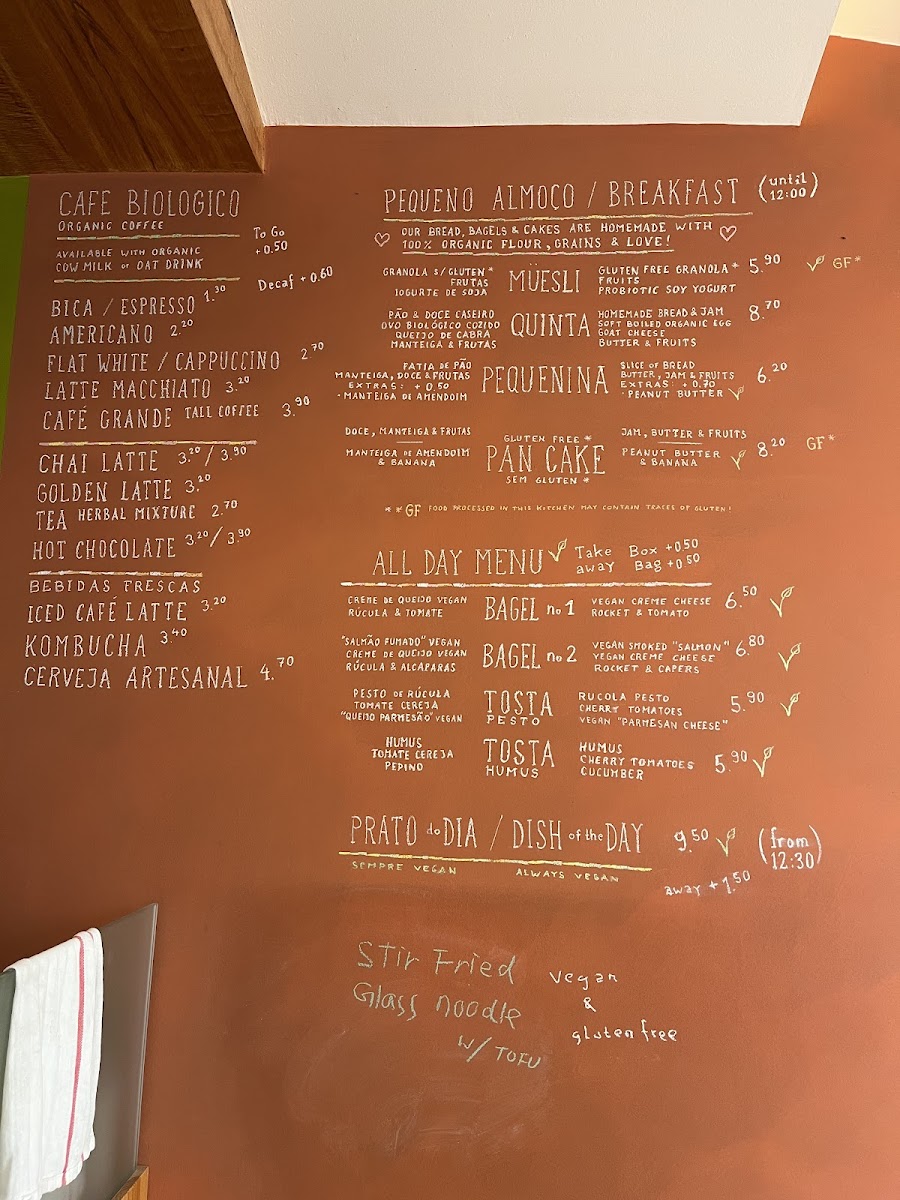 CAFE BIOLOGICO
ORGANIC COFFEE
To Go
+0.50
AVAILABLE WITH ORGANIC
COW MILK or OAT DRINK
Decaf +0.60
BICA / ESPRESSO 1.30
AMERICANO 2.20
FLAT WHITE / CAPPUCCINO 2.70
LATTE MACCHIATO 3.20
CAFÉ GRANDE TALL COFFEE 3.90
CHAI LATTE 3.20/3.90
GOLDEN LATTE 3.20
TEA HERBAL MIXTURE 2.70
HOT CHOCOLATE 3.20/3.90
BEBIDAS FRESCAS
ICED CAFÉ LATTE 3.20
KOMBUCHA 3.40
CERVEJA ARTESANAL 4.70
PEQUENO ALMOÇO / BREAKFAST (until 12:00)
OUR BREAD, BAGELS & CAKES ARE HOMEMADE WITH
100% ORGANIC FLOUR, GRAINS & LOVE!
GRANOLA S/ GLUTEN*
FRUTAS
IOGURTE DE SOJA
MÜESLI
GLUTEN FREE GRANOLA*
FRUITS
PROBIOTIC SOY YOGURT
5.90 GF*
PÃO & DOCE CASEIRO
OVO BIOLÓGICO COZIDO
QUEIJO DE CABRA
MANTEIGA & FRUTAS
QUINTA
HOMEMADE BREAD & JAM
SOFT BOILED ORGANIC EGG
GOAT CHEESE
BUTTER & FRUITS
8.70
FATIA DE PÃO
MANTEIGA, DOCE & FRUTAS
EXTRAS: +0.50
- MANTEIGA DE AMENDOIM
PEQUENINA
SLICE OF BREAD
BUTTER, JAM & FRUITS
EXTRAS: +0.70
- PEANUT BUTTER
6.20
DOCE, MANTEIGA & FRUTAS
MANTEIGA DE AMENDOIM
& BANANA
GLUTEN FREE*
PAN CAKE
SEM GLUTEN*
JAM, BUTTER & FRUITS
PEANUT BUTTER
& BANANA
8.20 GF*
**GF FOOD PROCESSED IN THIS KITCHEN MAY CONTAIN TRACES OF GLUTEN!
ALL DAY MENU
Take Box +0.50
away Bag +0.50
CREME DE QUEIJO VEGAN
RÚCULA & TOMATE
BAGEL no 1
VEGAN CREME CHEESE
ROCKET & TOMATO
6.50
"SALMÃO FUMADO" VEGAN
CREME DE QUEIJO VEGAN
RÚCULA & ALCAPARAS
BAGEL no 2
VEGAN SMOKED "SALMON"
VEGAN CREME CHEESE
ROCKET & CAPERS
6.80
PESTO DE RÚCULA
TOMATE CEREJA
"QUEIJO PARMESÃO" VEGAN
TOSTA
PESTO
RUCOLA PESTO
CHERRY TOMATOES
VEGAN "PARMESAN CHEESE"
5.90
HUMUS
TOMATE CEREJA
PEPINO
TOSTA
HUMUS
HUMUS
CHERRY TOMATOES
CUCUMBER
5.90
PRATO do DIA / DISH of the DAY 9.50 (from 12:30)
SEMPRE VEGAN ALWAYS VEGAN
away +1.50
Stir Fried
Glass noodle
w/ TOFU
vegan
&
gluten free